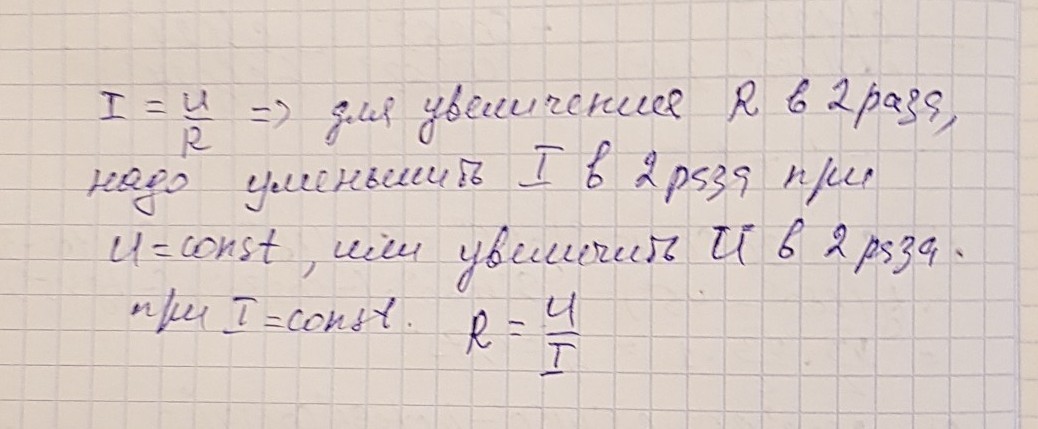 I = U/R => для увеличения R в 2 раза,
надо уменьшить I в 2 раза при
U = const, или увеличить U в 2 раза.
при I = const. R = U/I